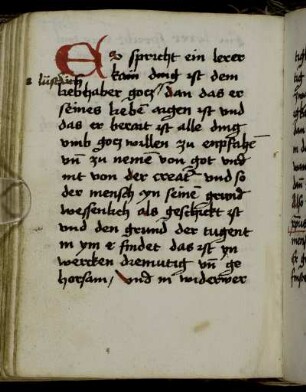 Es spricht ein lerer
kain ding ist dem
lustlich
liebhaber gocz / dan das er
seines liebē augen ist vnd
das er berait ist alle ding
vmb gocz willen zu enpfahē
vn̄ zu nemē von got vnd
nit von der creatˀ vnd so
der mensch yn seinē grund
wesenlich als geschickt ist
vnd den grund der tugent
in ym er findet das ist yn
wercken diemutig vn̄ ge
horsam / vnd in widerwer